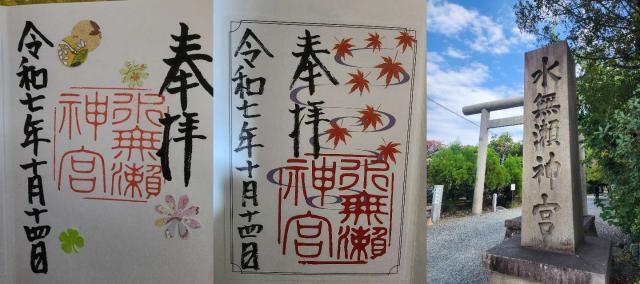 奉拝
水無瀬
神宮
令和七年十月十四日
奉拝
水無瀬
神宮
令和七年十月十四日
水無瀬神宮